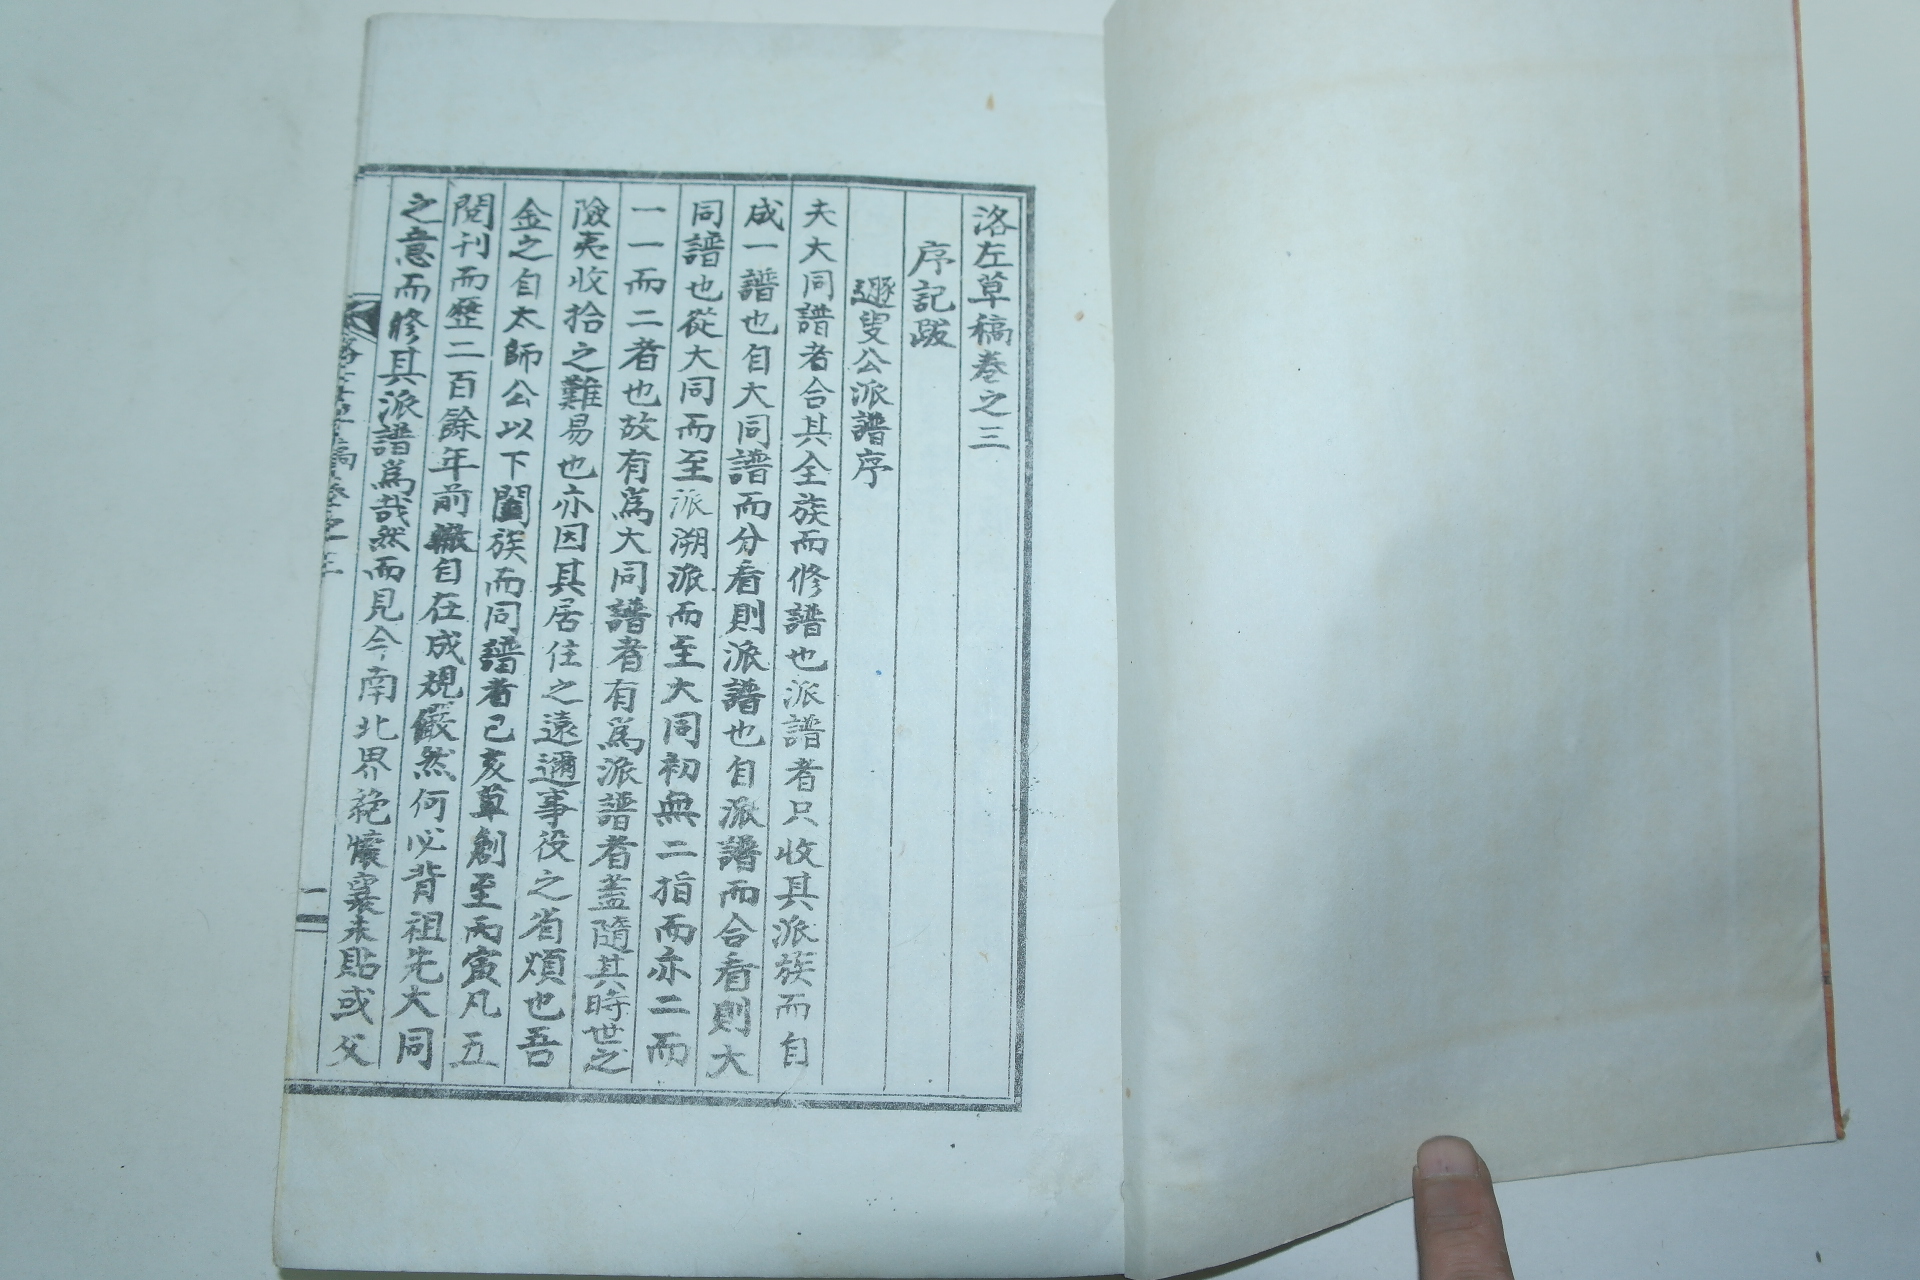 洛左草稿卷之三
序記跋
遯叟公派譜序
夫大同譜者合其全族而修譜也派譜者只收其派族而自
成一譜也自大同譜而分看則派譜也自派譜而合看則大
同譜也從大同而至派溯派而至大同初無二指而亦二而
一一而二者也故有爲大同譜者有爲派譜者蓋隨其時世之
險夷收拾之難易也亦因其居住之遠邇事役之省煩也吾
金之自太師公以下闔族而同譜者己亥草創至丙寅凡五
閱刊而歷二百餘年前轍自在成規儼然何必背祖先大同
之意而修其派譜爲哉然而見今南北界絶懷襄未貼或父
洛左草稿卷之三
一